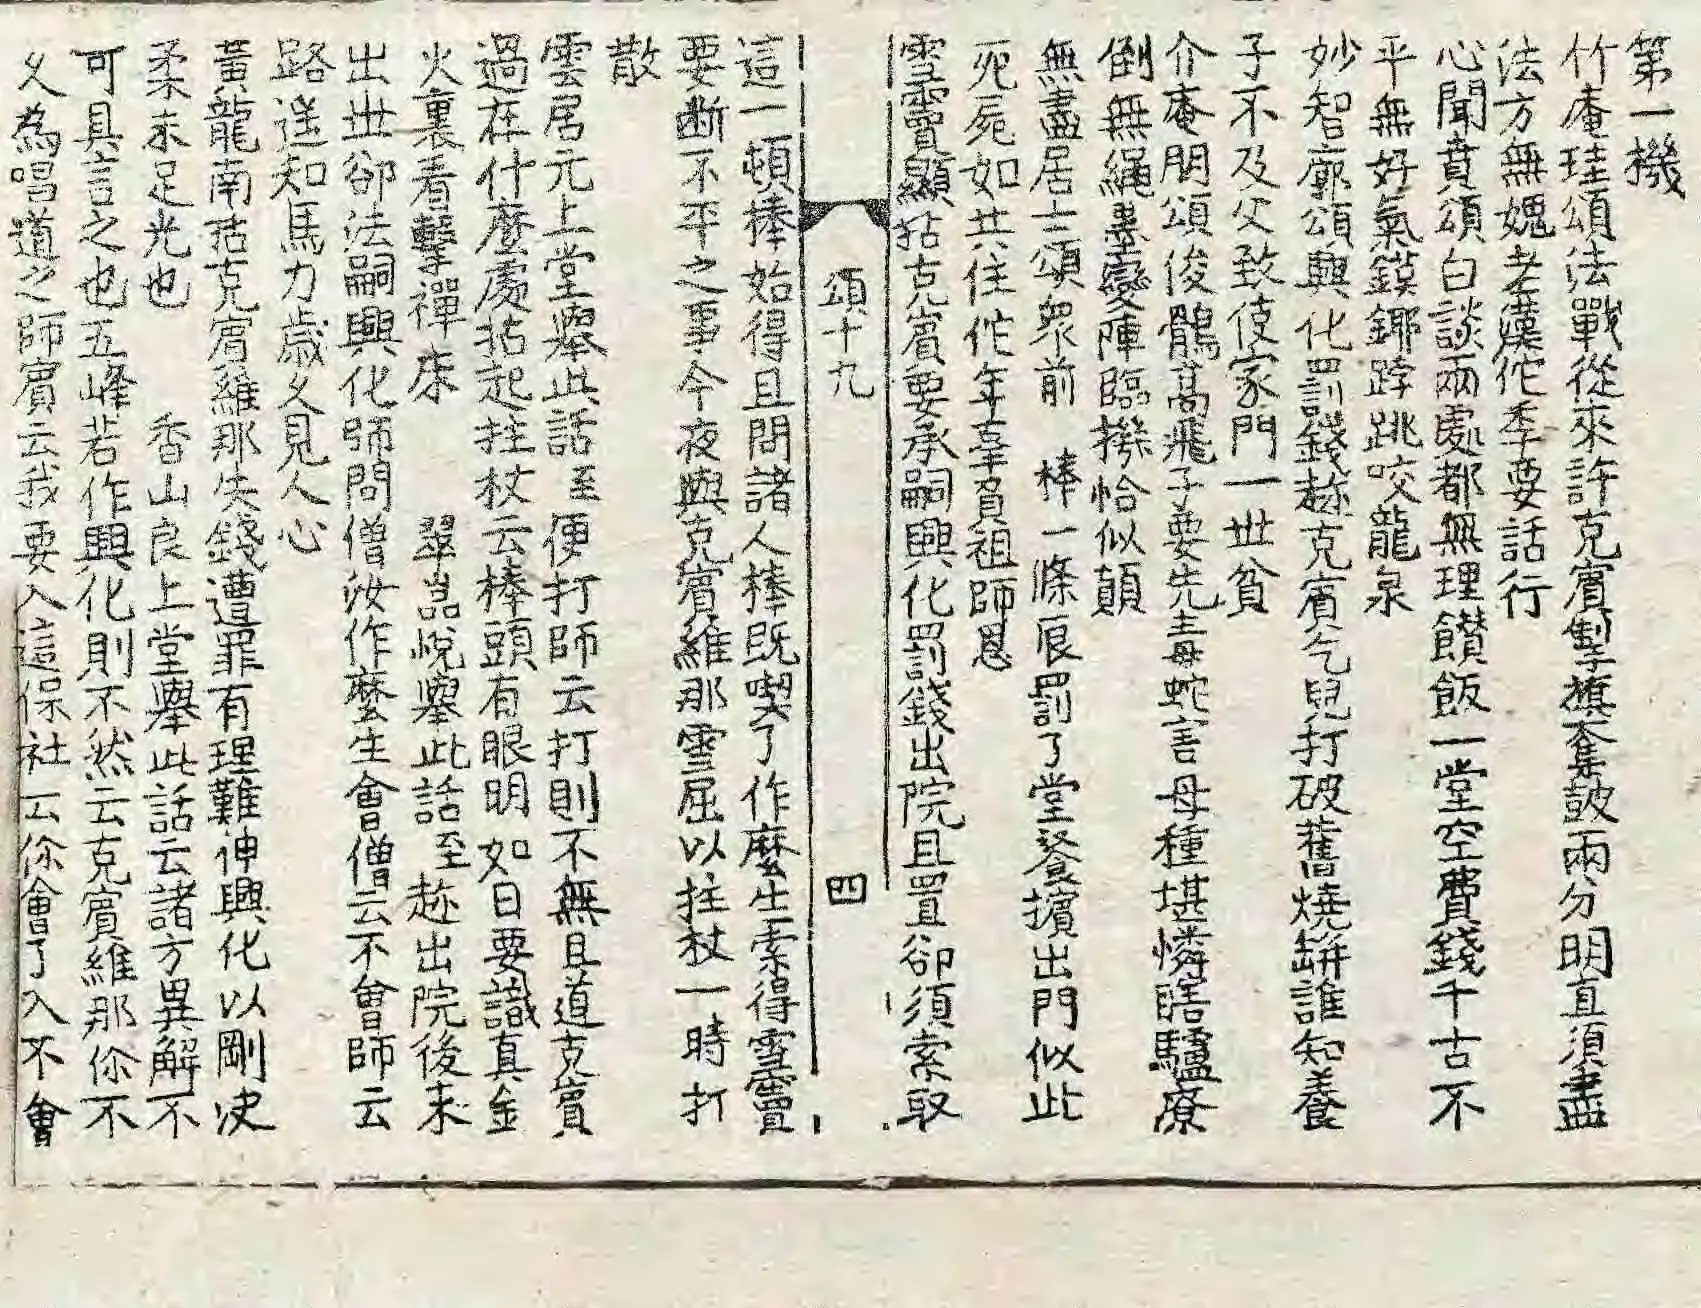 第一機
竹庵珪頌法戰從來許克賓掣旗奪皷兩分明直須盡
法方無媿老漢佗季要話行
心聞賁頌白談兩處都無理饡飯一堂空費錢千古不
平無好氣鏌鎁跨跳咬龍泉
妙智廓頌興化罰錢趂克賓乞兒打破舊燒缾誰知養
子不及父致使家門一世貧
介庵朋頌俊鶻髙飛子要先毒蛇害母種堪憐瞎驢療
倒無繩墨變陣臨機恰似顛
無盡居士頌衆前 棒一條痕罰了堂飡擯出門似此
死屍如共住佗年辜負祖師恩
雪竇顯拈克賓要承嗣興化罰錢出院且置卻須索取
頌十九
四
這一頓棒始得且問諸人棒既喫了作麽生索得雪竇
要断不平之事今夜與克賓維那雪屈以拄杖一時打
散
雲居元上堂舉此話至便打師云打則不無且道克賓
過在什麽處拈起拄杖云棒頭有眼明如日要識真金
火裏看擊禪床 翠嵓悅舉此話至趂出院後來
出世卻法嗣興化師問僧汝作麽生會僧云不會師云
路遥知馬力歲久見人心
黃龍南拈克賓維那失錢遭罪有理難伸興化以剛決
柔未足光也 香山良上堂舉此話云諸方異解不
可具言之也五峰若作興化則不然云克賓維那伱不
久為唱道之師賓云我要入這保社云伱會了入不會